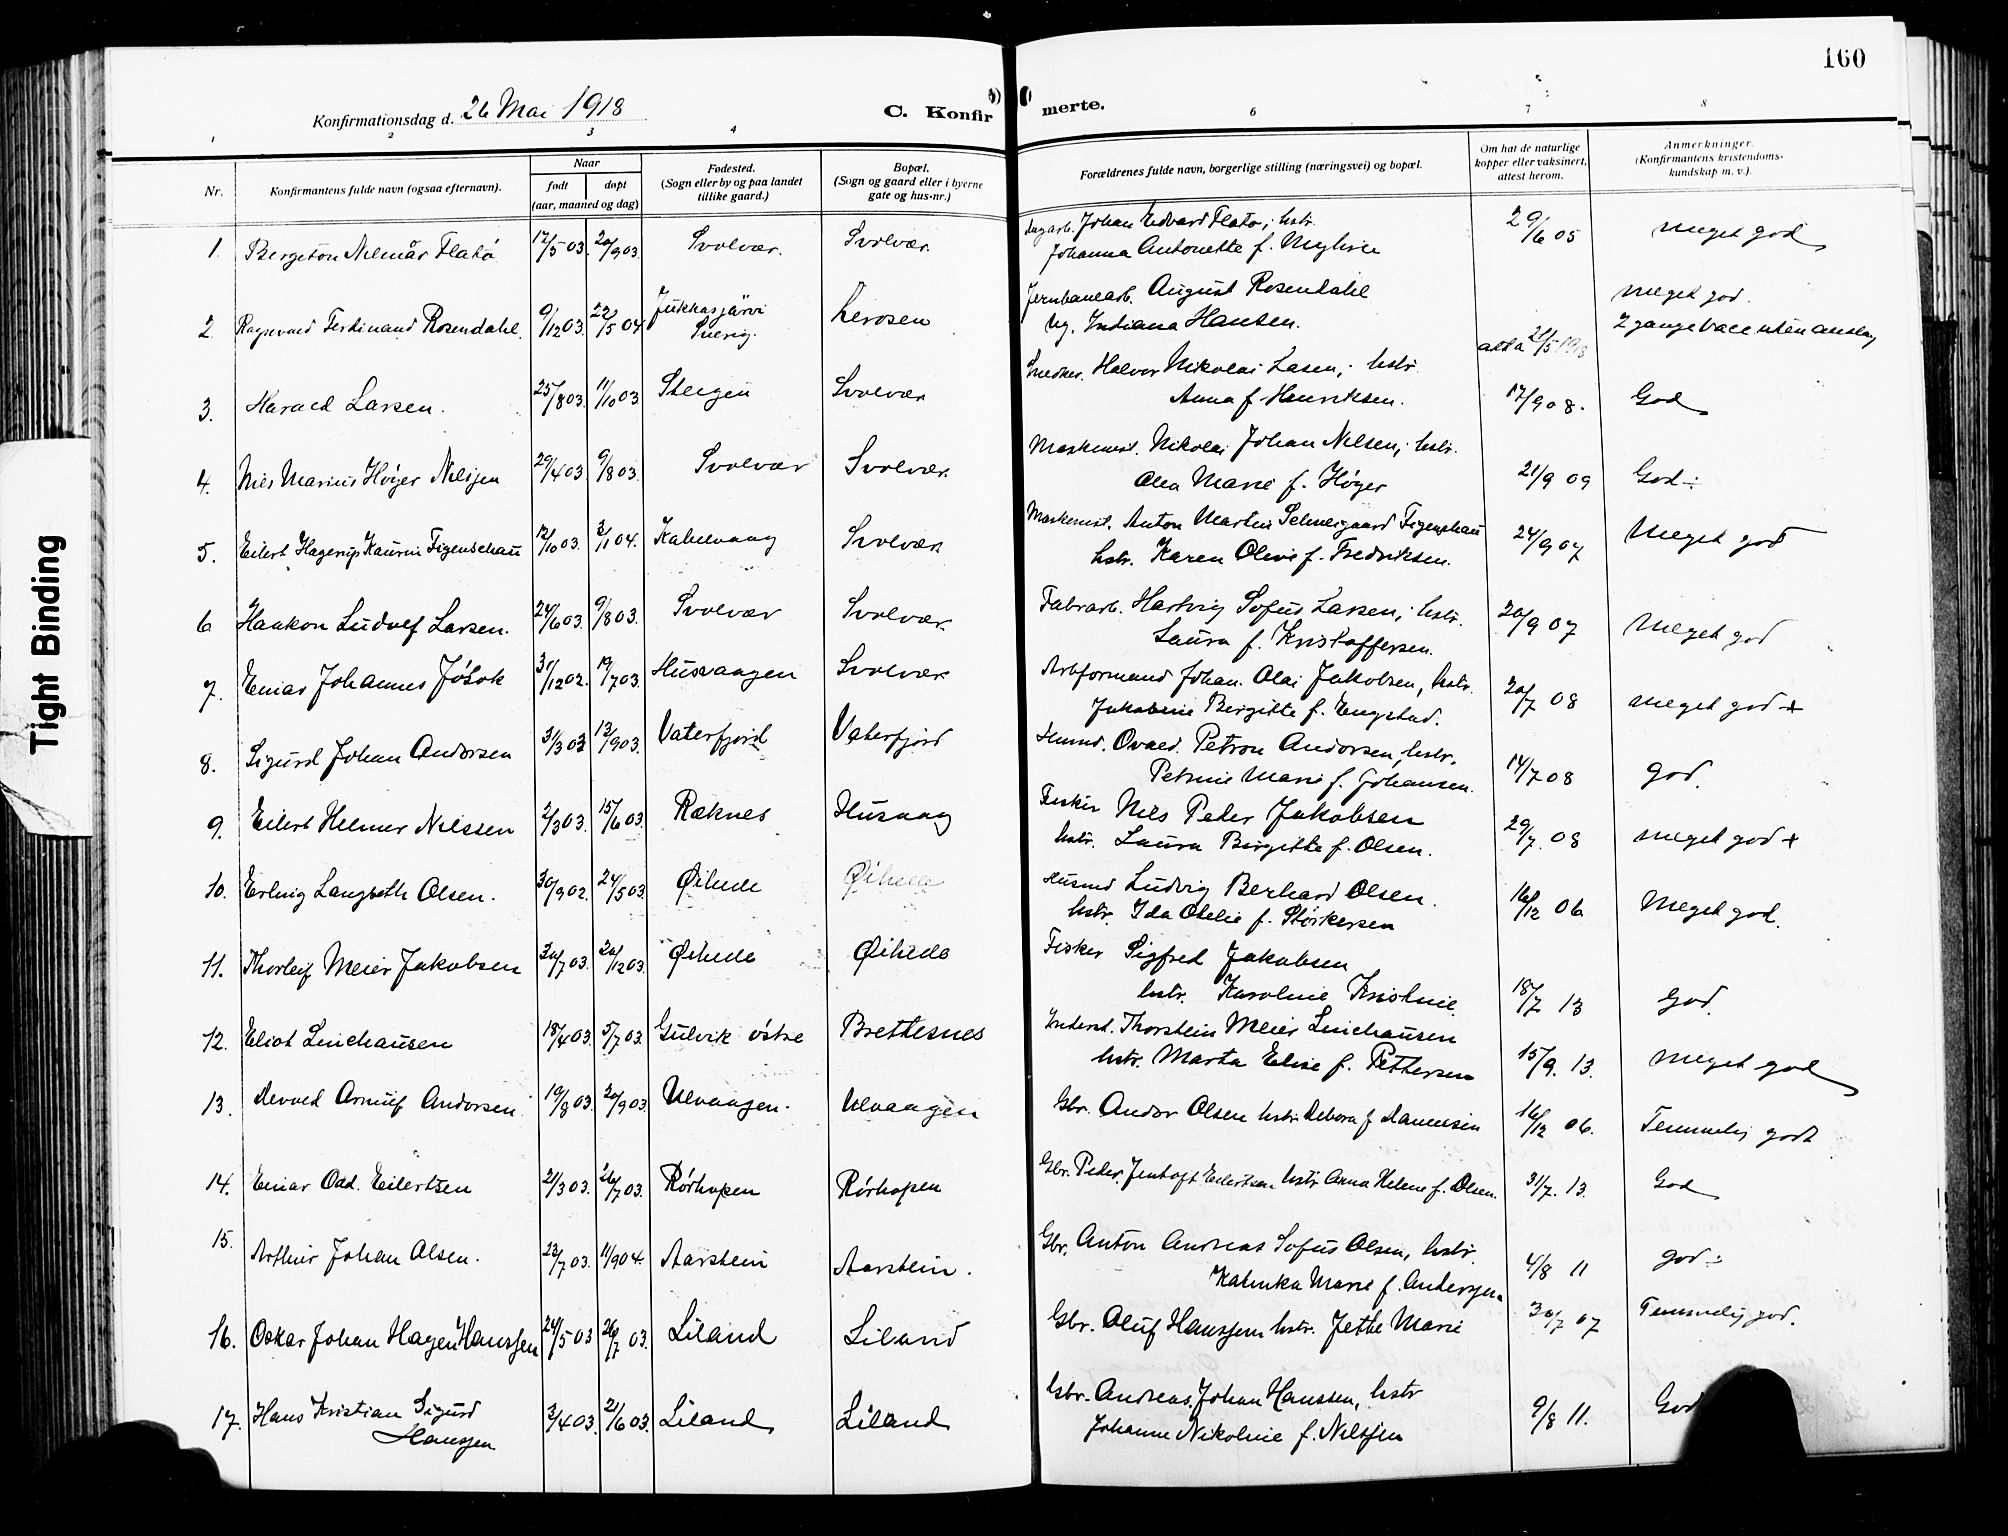 160
Konfirmationsdag d. 26 Mai 1918
C. Konfirmerte.
1 2 3 4 5) 6 7 8
Nr.
Konfirmantens fulde navn (ogsaa efternavn).
Naar
født døpt
(aar, maaned og dag)
Fødested.
(Sogn eller by og paa landet
tillike gaard.)
Bopæl.
(Sogn og gaard eller i byerne
gate og hus-nr.)
Forældrenes fulde navn, borgerlige stilling (næringsvei) og bopæl.
Om hat de naturlige
kopper eller vaksinert,
attest herom.
Anmerkninger.
(Konfirmantens kristendoms-
kundskap m. v.).
1. Bergeton Hilmar Flatø 17/5 03. 20/9 03. Svolvær. Svolvær. Johan Edvard Flatø; hstr.
Johanna Antonette f. Myhre 29/6 05 Meget god
2. Ragnvald Ferdinand Rosendahl. 9/12 03. 22/5 04 Jukkasjärvi Sverig. Jernbanearb. August Rosendahl
Ug. Indiana Hansen. 21/5 1918 Meget god.
2 gange vacc uten anslag
3. Harald Larsen. 25/8 03. 11/10 03 Steigen Svolvær Snedker. Halvor Nikolai Lasen; hstr.
Anna f. Henriksen. 17/9 08. God
4. Nils Marius Høyer Nilsen 29/4 03 9/8 03. Svolvær Svolvær. Maskinist. Nikolai Johan Nilsen; hstr.
Olea Marie f. Høyer 21/9 09 God ÷
5. Eilert Hagerup Kaurin Figenschau 12/10 03. 3/1 04. Kabelvaag Svolvær. Maskinist. Anton Martin Figenschau
hstr. Karen Olivie f. Fredriksen. 24/9 07 Meget god
6 Haakon Ludvef Larsen. 24/6 03. 9/8 03. Svolvær Svolvær. Fabrarb. Hartvig Sofus Larsen; hstr.
Laura f. Kristoffersen. 20/9 07 Meget god
7. Einar Johannes 31/12 02. 19/7 03. Husvaagen Svolvær. Arbformand Johan Olai Jakobsen, hstr.
Jakobine Bergitte f. Engstad. 20/7 08 Meget god +
8. Sigurd Johan Andorsen 31/3 03 13/9 03. Vaterfjord Vaterfjord Husmd. Ovald Petron Andorsen, hstr.
Petrine Marie f. Johansen. 14/7 08 God.
9. Eilert Helmer Nilssen 2/3 03. 15/6 03. Ræknes Husvaag Fisker Nils Peder Jakobsen
hstr. Laura Birgitte f. Olsen. 29/7 08 meget god +
10. Erling Langseth Olsen. 30/9 02. 24/5 03. Øihelle Øihelle Husmd Ludvig Berhard Olsen.
hstr. Ida Otelie f. Størkersen 16/12 06 Meget god.
11. Thorleif Meier Jakobsen 20/7 03. 20/12 03. Øihelle Øihelle Fisker Sigfred Jakobsen
hstr. Karoline Kristine 18/7 13 God.
12. Eliot Linchausen 18/4 03. 5/7 03. Gulvik østre Brettesnes Inderst. Thorstein Meier Linchausen
hstr. Marta Elise f. Pettersen 15/9. 13. Meget god
13. Arnulf Andorsen 19/8 03. 20/9 03. Ulvaagen. Ulvaagen Gbr. Andor Olsen hstr. Debora f. Danielsen 16/12 06. Temmelig godt
14. Einar Odd. Eilertsen 21/3 03. 26/7 03. Rørhopen Rørhopen Gbr. Peder Jentoft Eilertsen hstr. Anna Helene f. Olsen. 31/7. 13. God
15. Arthur Johan Olsen. 23/7 03. 11/9 04. Aarstein Aarstein. Gbr. Anton Andreas Sofus Olsen, hstr.
Kalinka Marie f. Andersen 4/8 11 god ÷
16. Oskar Johan Hagen Hanssen 24/5 03 26/7 03. Liland Liland Gbr. Oluf Hanssen hstr. Jette Marie 30/7 07 Temmelig god.
17. Hans Kristian Sigurd
Hanssen 3/4 03. 21/6 03. Liland Liland Gbr. Andreas Johan Hanssen, hstr
Johanne Nikoline f. Nilssen 9/8 11. God
Tight Binding